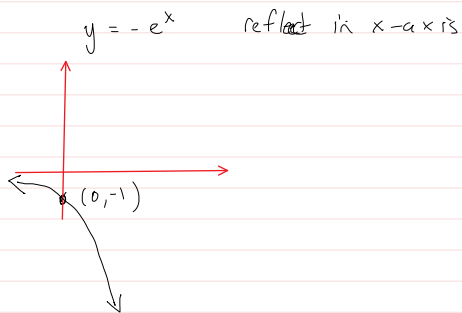 y = -e^x reflect in x-axis
(0,-1)